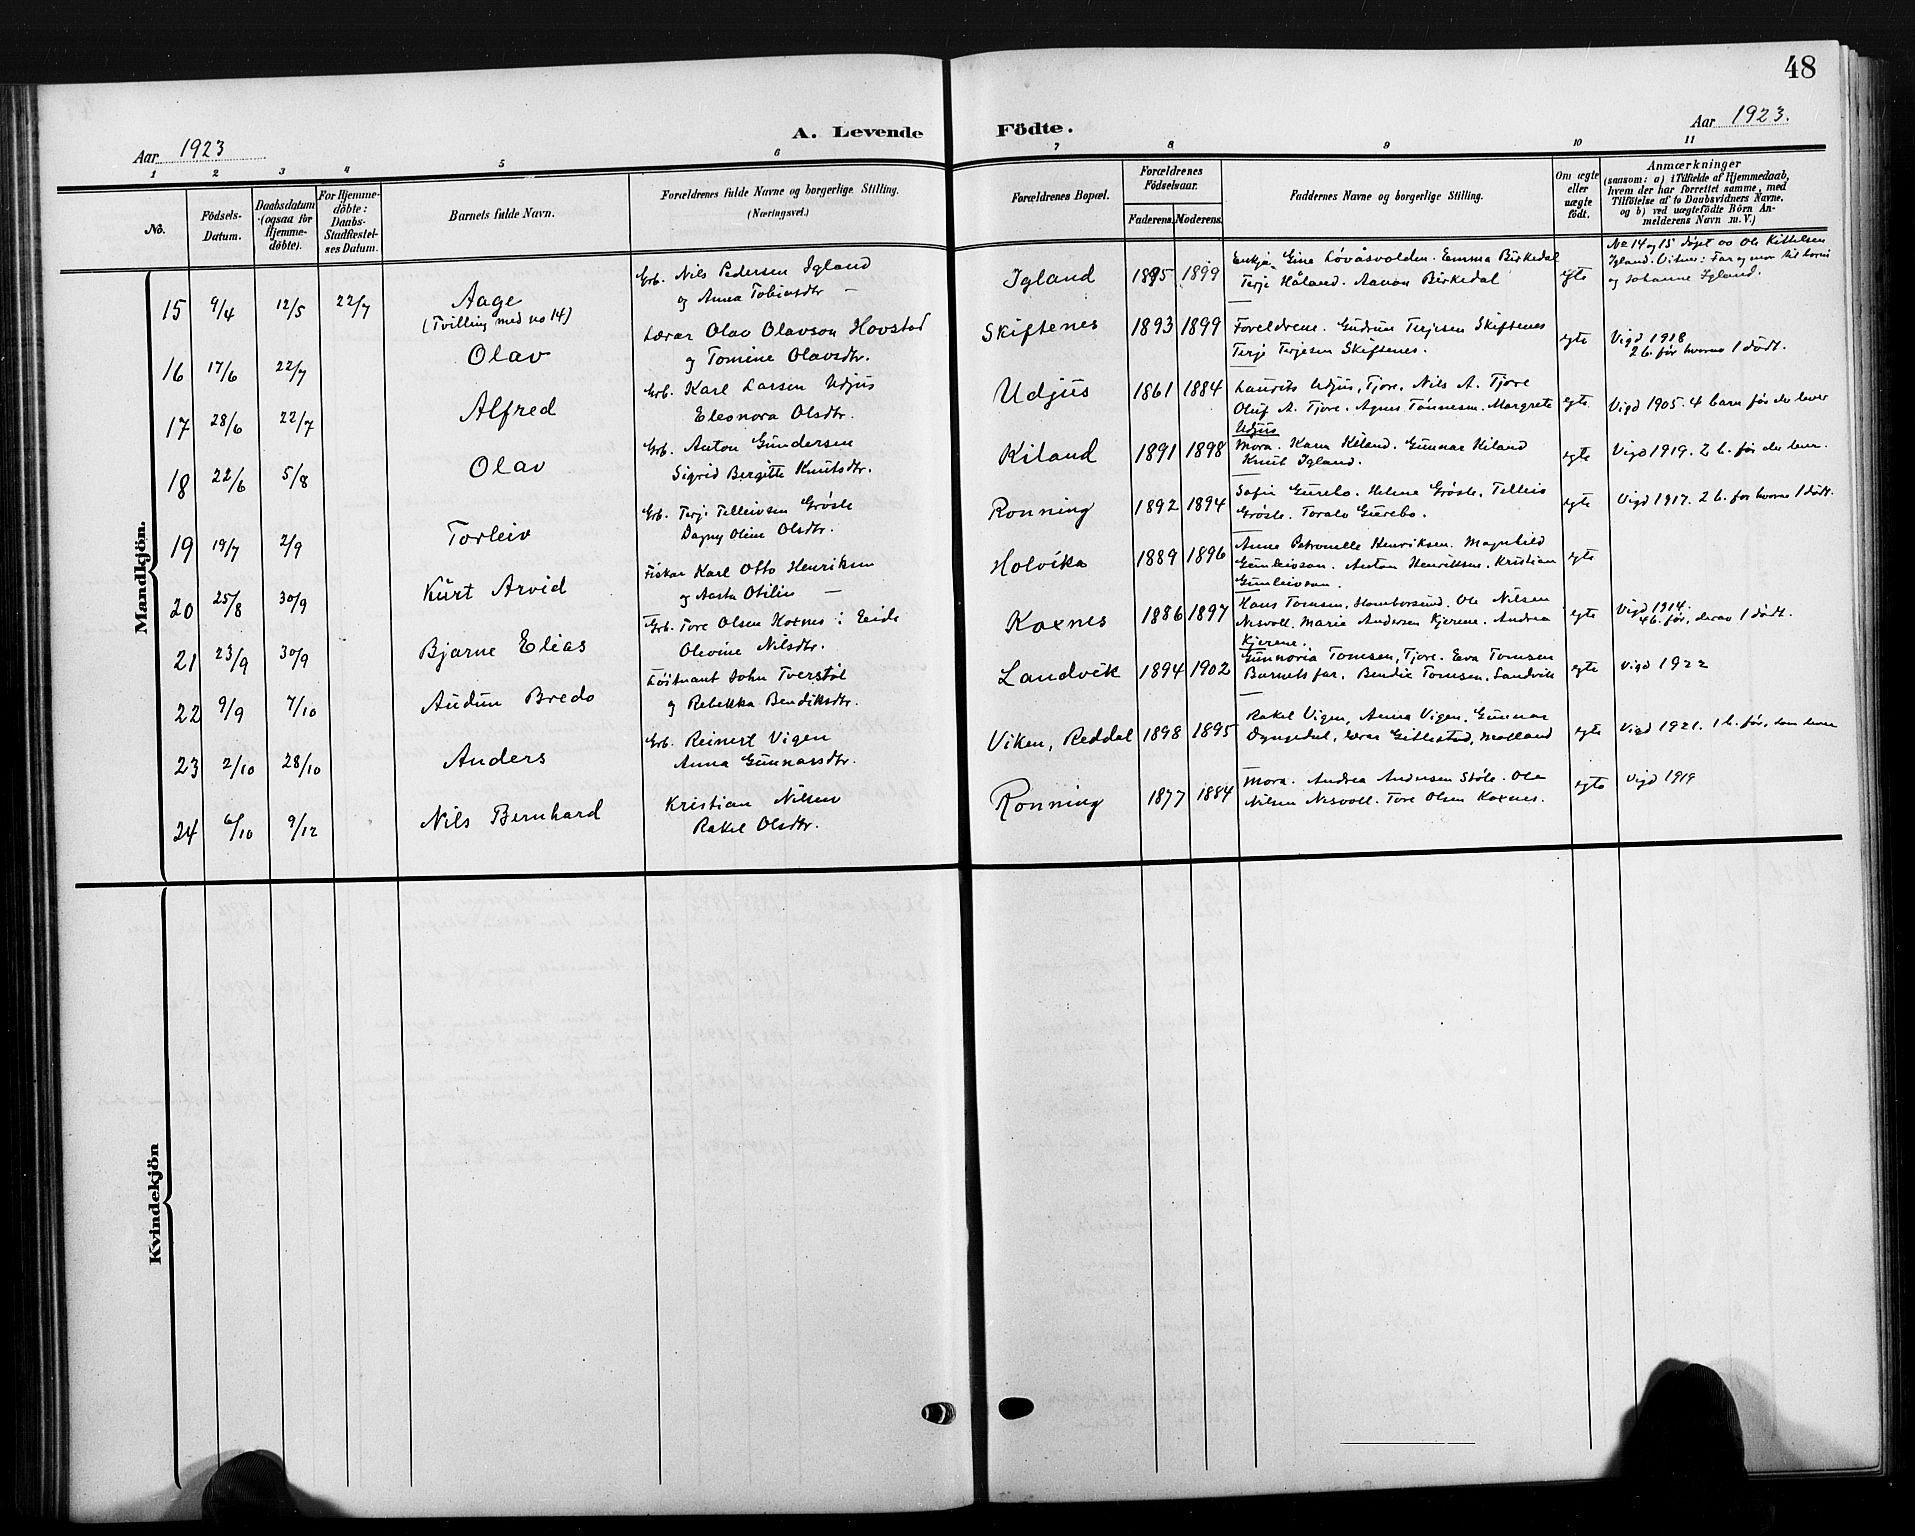 48
Aar 1923
A. Levende Födte.
Aar 1923.
1 2 3 4 5 6 7 8 9 10 11
No.
Födsels-Datum.
Daabsdatum (ogsaa for Hjemme-döbte).
For Hjemme-döbte: Daabs-Stadfæstel-ses Datum.
Barnets fulde Navn.
Forældrenes fulde Navne og borgerlige Stilling.
(Næringsvei.)
Forældrenes Bopæl.
Forældrenes Födselsaar.
Faderens. Moderens.
Faddernes Navne og borgerlige Stilling.
Om ægte eller uægte födt.
Anmærkninger
(saasom: a) i Tilfælde af Hjemmedaab,
hvem der har forrettet samme, med
Tilföielse af to Daabsvidners Navne,
og b) ved uægtefödte Börn An-
melderens Navn m. V.)
Mandkjön.
15 9/4 12/5 22/7 Aage
(Tvilling med no 14)
Grb. Nils Pedersen Igland
og Anna Tobiasdtr —
Igland 1895 1899
Enkje Gina Lövåsvolden. Emma Birkedal
Terje Håland. Aanon Birkedal
egte
No 14 og 15 døpt av Ole Kittelsen
Igland. Vitner: Far og mor til barnet
og Johanne Igland.
16 17/6 22/7 Olav
Lærar Olav Olavson Hovstad
og Tomine Olavsdtr.
Skiftenes 1893 1899
Foreldrene. Gudrun Terjesen Skiftenes
Terje Terjesen Skiftenes.
egte
Vigd 1918
2 b. før hvorav 1 dødt.
17 28/6 22/7 Alfred
Grb. Karl Larsen Udjus
Eleonora Olsdtr.
Udjus 1861 1884
Laurits Udjus, Tjore, Nils A. Tjore
Oluf A. Tjore. Agnes Tönnesen. Margrete
Udjus
egte
Vigd 1905. 4 barn før der lever
18 22/6 5/8 Olav
Grb. Anton Gundersen
Sigrid Bergitte Knutsdtr.
Kiland 1891 1898
Mora. Karen Kiland. Gunnar Kiland
Knut Igland.
egte
Vigd 1919. 2 b. før der lever.
19 19/7 2/9 Torleiv
Grb. Terje Telleivsen Grösle
Dagny Oline Olsdtr.
Ronning 1892 1894
Sofie Gurebo. Helene Grösle, Telleiv
Grösle. Toralv Gurebo.
egte
Vigd 1917. 2 b. før hvorav 1 dødt.
20 25/8 30/9 Kurt Arvid
Fiskar Karl Otto Henriksen
og Aasta Otilie —
Holvika 1889 1896
Anne Petronelle Henriksen. Magnhild
Gunleivson. Anton Henriksen. Kristian
Gunleivson.
egte
21 23/9 30/9 Bjarne Elias
Grb. Tore Olsen Koxnes i Eide
Olevine Nilsdtr.
Koxnes 1886 1897
Hans Tomsen, Homborsund. Ole Nilsen
Nesvoll. Marie Andersen Kjerene. Andrea
Kjerene.
egte
Vigd 1914.
4 b. før, derav 1 dødt.
22 9/9 7/10 Audun Bredo
Löitnant John Tverstöl
og Rebekka Bendiksdtr.
Landvik 1894 1902
Gunnoria Tomsen, Tjore. Eva Tomsen
Barnets far. Bendix Tomsen, Landvik
egte
Vigd 1922
23 2/10 28/10 Anders
Grb. Reinert Vigen
Anna Gunnarsdtr.
Viken, Reddal 1898 1895
Rakel Vigen, Anna Vigen. Gunnar
Dyngedal, Molland
egte
Vigd 1921. 1 b. før, som lever
24 6/10 9/12 Nils Bernhard
Kristian Nilsen
Rakel Olsdtr.
Ronning 1877 1884
Mora. Andrea Andersen Stöle. Ole
Nilsen Nesvoll. Tore Olsen Koxnes.
egte
Vigd 1919
Kvindekjön